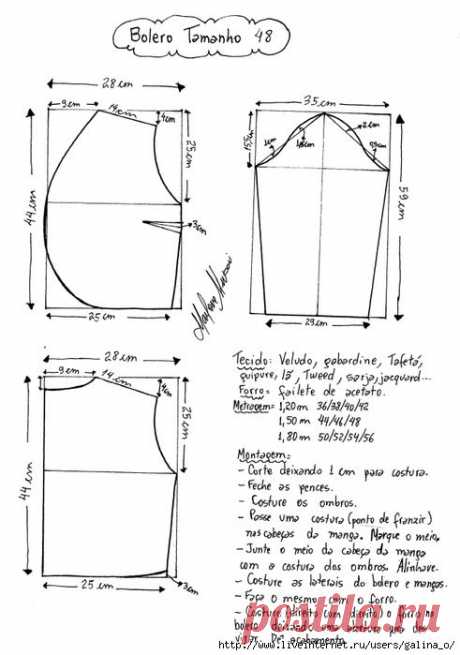 Bolero Tamanho 48
28 cm
9cm
14cm
4cm
25cm
44cm
3cm
25 cm
35cm
15,5cm
1cm
1,5cm
2cm
0,5cm
59cm
29cm
28 cm
9cm
14 cm
4cm
25cm
44 cm
25 cm
3cm
Tecido: Veludo, gabardine, Tafetá,
guipure, lã, Tweed, sarja, jacquard...
Forro: failete de acetato.
Metragem: 1,20m 36/38/40/42
1,50 m 44/46/48
1,80 m 50/52/54/56
Montagem:
- Corte deixando 1 cm para costura.
- Feche as pences.
- Costure os ombros.
- Passe uma costura (ponto de franzir)
nas cabeças da manga. Marque o meio.
- Junte o meio da cabeça da manga
com a costura dos ombros. Alinhave.
- Costure as laterais do bolero e mangas.
- Faça o mesmo com o forro.
- Costure direito com direito o forro no
bolero deixando uma abertura para
virar. Dê acabamento.
postila.ru
http://www.liveinternet.ru/users/galina_o/